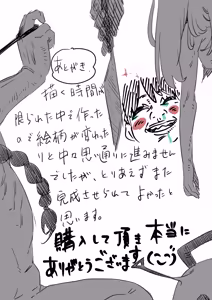 あとがき
描く時間が
限られた中で作った
ので絵柄が変わった
りと中々思い通りに進みません
でしたが、とりあえずまた
完成させられて よかったと
思います。
購入して頂き本当に
ありがとうございます